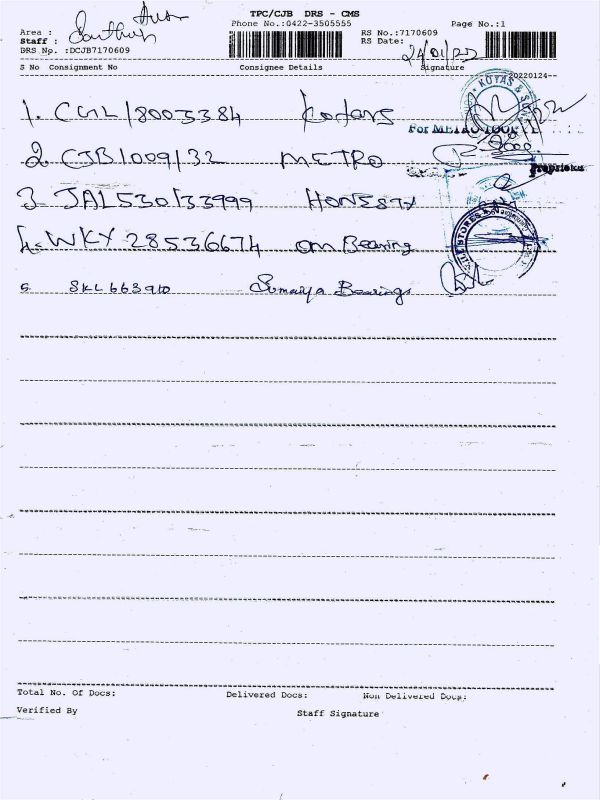 TPC/CJB DRS - CMS
Phone No.:0422-3505555 Page No.:1
Area :
Staff : RS No.:7170609
DRS No. :DCJB7170609 RS Date: 24/01/22
S No Consignment No Consignee Details Signature
20220124--
1. CGL 18003384
KOTAS &
For METRO TOOL
2 CJB 1009132 METRO
Proprietor
3 JAL530133999 HONESTY
4. WKY 28536674 Om Bearing
STORES
5. SKL 663910 Sumaya Bearings
Total No. Of Docs: Delivered Docs: Non Delivered Docs:
Verified By Staff Signature